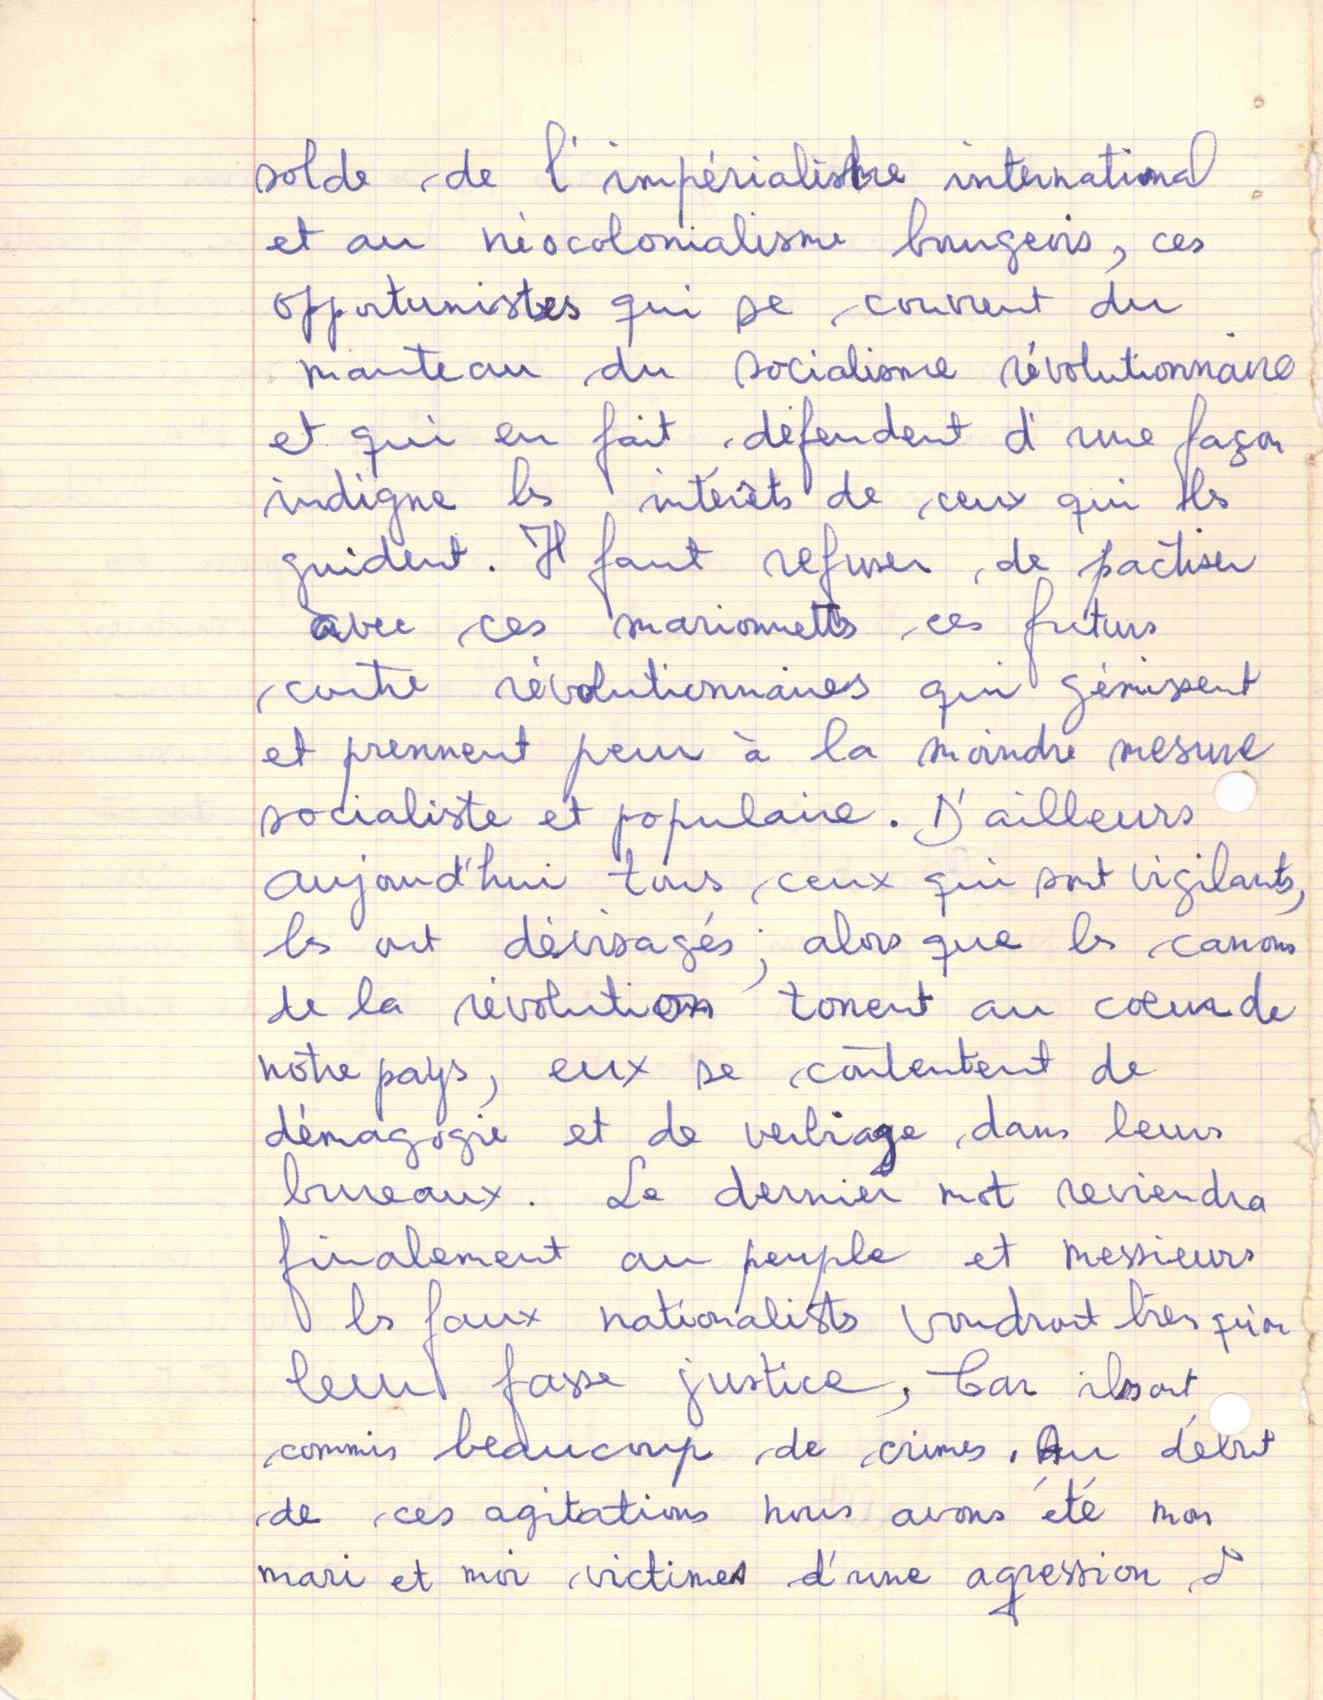 solde de l'impérialisme international
et au néocolonialisme bourgeois, ces
opportunistes qui se couvrent du
manteau du socialisme révolutionnaire
et qui en fait défendent d'une façon
indigne les intérêts de ceux qui les
guident. Il faut refuser de pactiser
avec ces marionnettes ces futurs
contre révolutionnaires qui gémissent
et prennent peur à la moindre mesure
socialiste et populaire. D'ailleurs
aujourd'hui tous ceux qui sont vigilants,
les ont dévisagés ; alors que les canons
de la révolution tonent au coeur de
nôtre pays, eux se contentent de
démagogie et de verbiage dans leurs
bureaux. Le dernier mot reviendra
finalement au peuple et messieurs
les faux nationalistes voudront bien qu'on
leur fasse justice, Car ils ont
commis beaucoup de crimes. Au début
de ces agitations nous avons été mon
mari et moi victimes d'une agression d'